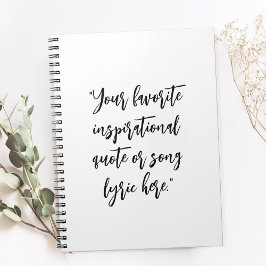 "Your favorite
inspirational
quote or song
lyric here."